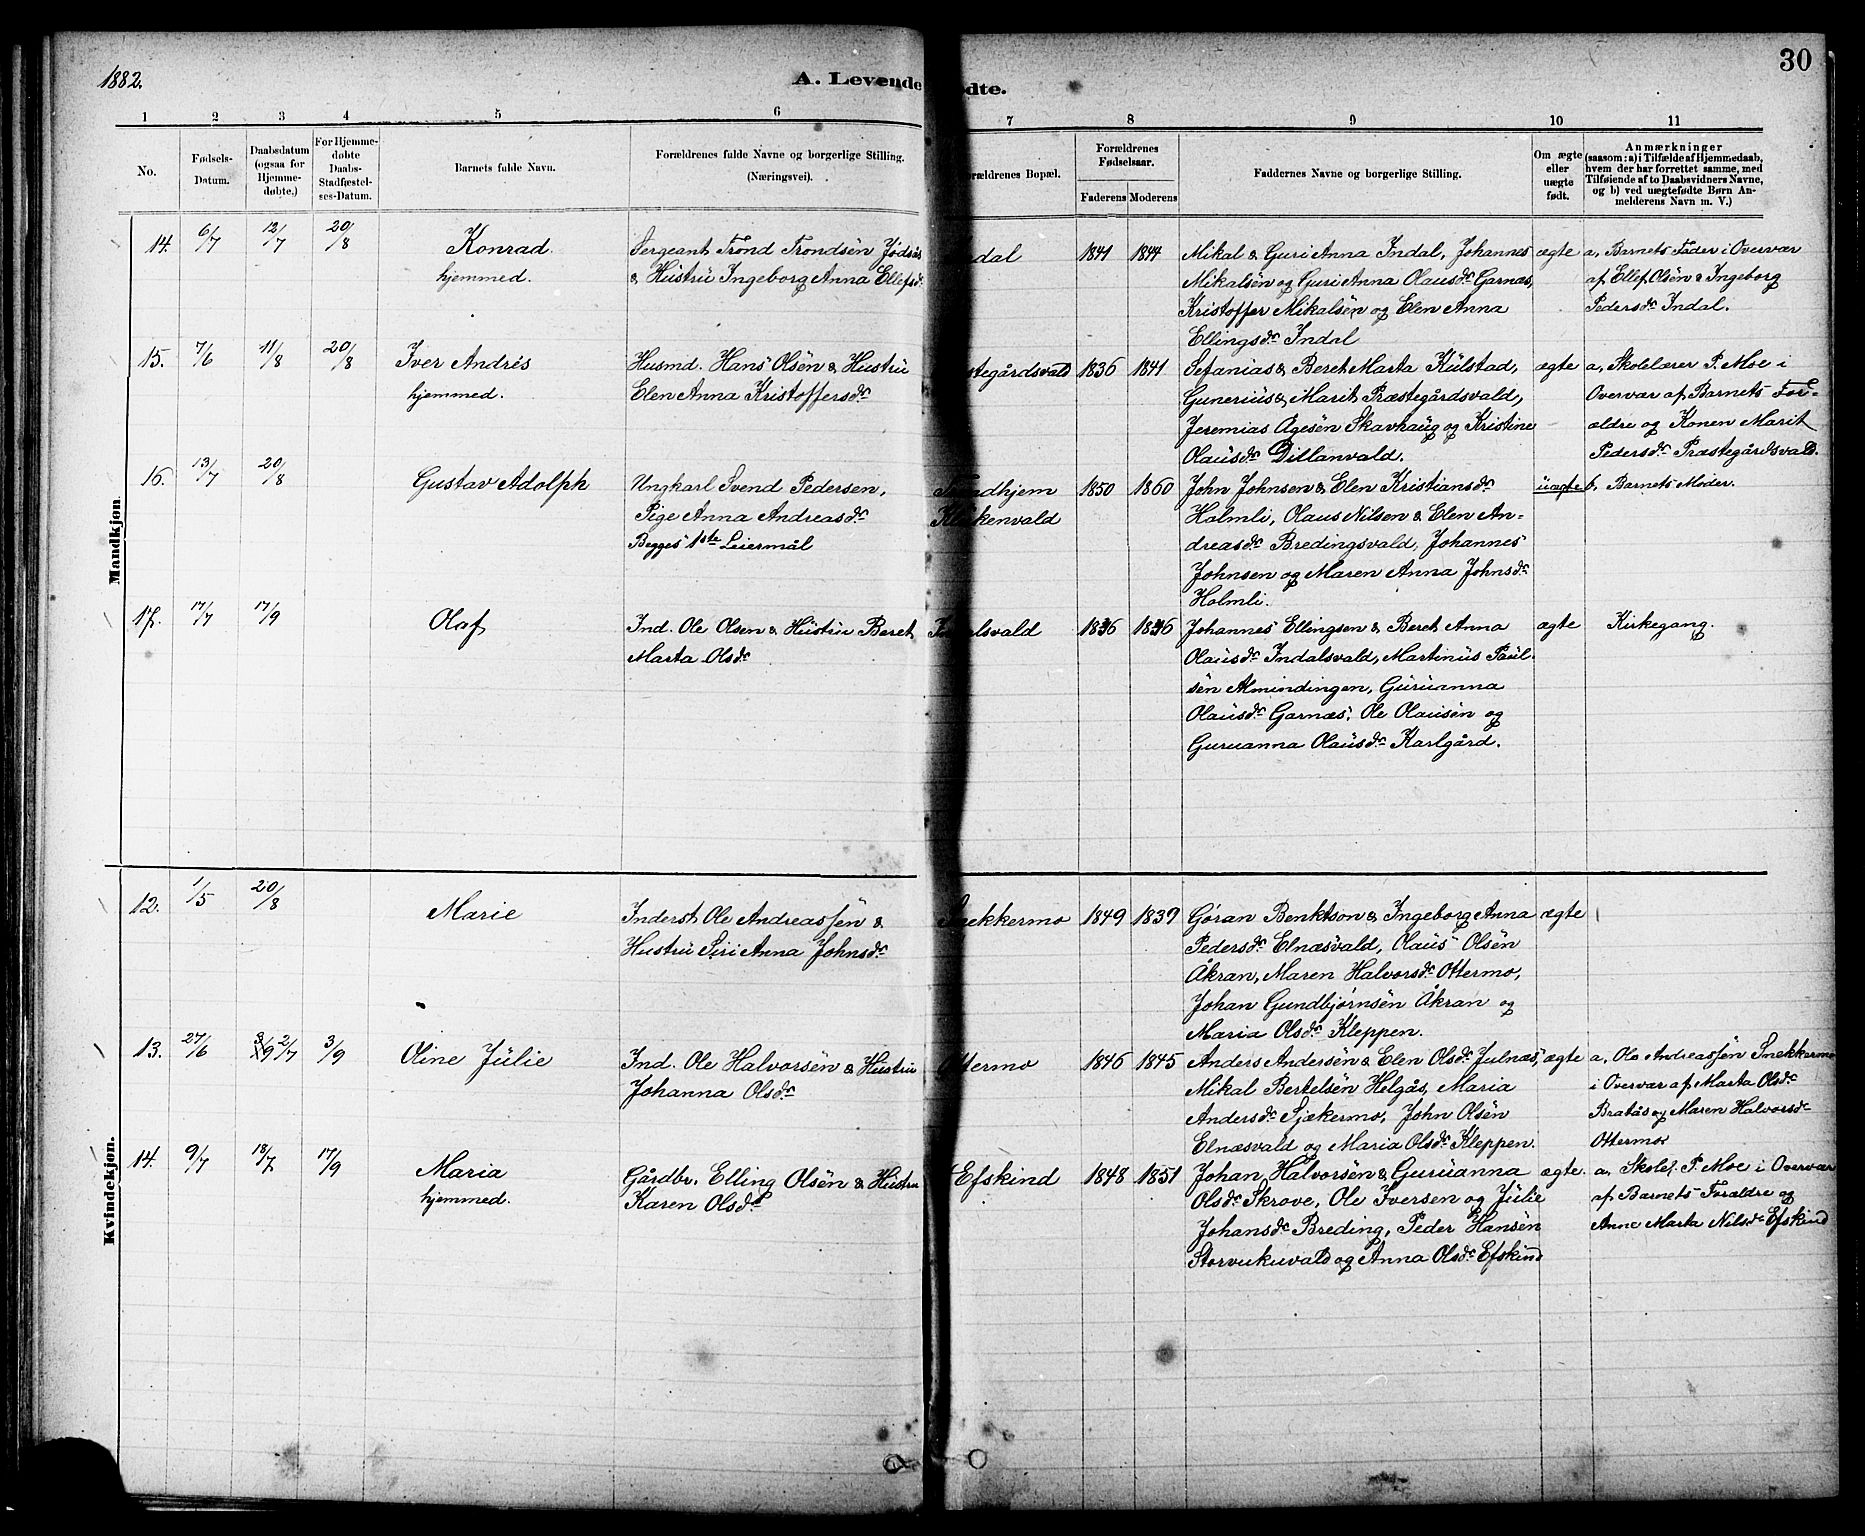 1882.
A. Levende
ødte.
30
1 2 3 4 5 6 7 8 9 10 11
No.
Fødsels-
Datum.
Daabsdatum
(ogsaa for
Hjemme-
døbte.)
For Hjemme-
døbte
Daabs-
Stadfæstel-
ses-Datum.
Barnets fulde Navn.
Forældrenes fulde Navne og borgerlige Stilling.
(Næringsvei).
orældrenes Bopæl.
Forældrenes
Fødselsaar.
Faderens Moderens
Faddernes Navne og borgerlige Stilling.
Om ægte
eller
uægte
født.
Anmærkninger
(saasom: a) i Tilfælde af Hjemmedaab,
hvem der har forrettet samme, med
Tilføiende af to Daabsvidners Navne,
og b) ved uægtefødte Børn An-
melderens Navn m. V.)
Mandkjøn
14. 6/7 12/7 20/8
Konrad
hjemmed.
Sergeant Trond Trondsen Jødsås
& Hustru Ingeborg Anna Ellefsdr
dal
1841 1844
Mikal & Guri Anna Indal, Johannes
Mikalsen og Guri Anna Olausdr Garnæs,
Kristoffer Mikalsen og Elen Anna
Ellingsdr Indal
ægte
a, Barnets Fader i Overvær
af Ellef Olsen & Ingeborg
Pedersdr Indal.
15. 7/6 11/8 20/8
Iver Andrés
hjemmed.
Husmd. Hans Olsen & Hustru
Elen Anna Kristoffersdr
stegårdsvald
1836 1841
Sefanias & Beret Marta Kulstad,
Gunerius & Marit Præstegårdsvald,
Jeremias Agesen Skavhaug og Kristine
Olausdr Dillanvald.
ægte
a, Skolelærer P. Moe i
Overvær af Barnets For-
ældre og Konen Marit
Pedersdr Præstegårdsvald.
16. 13/7 20/8
Gustav Adolph
Ungkarl Svend Pedersen,
Pige Anna Andreasdr
Begges 1ste Leiermål
Trondhjem
Klokkenvald
1850 1860
John Johnsen & Elen Kristiansdr
Holmli, Olaus Nilsen & Elen An-
dreasdr Bredingsvald, Johannes
Johnsen og Maren Anna Johnsdr
Holmli.
uægte
b. Barnets Moder.
17. 17/7 17/9
Olaf
Ind. Ole Olsen & Hustru Beret
Marta Olsdr
Indalsvald
1836 1836
Johannes Ellingsen & Beret Anna
Olausdr Indalsvald, Martinus Paul-
sen Almindingen, Guruanna
Olausdr Garnæs, Ole Olausen og
Guruanna Olausdr Karlgård.
ægte
Kirkegang.
Kvindekjøn.
12. 1/5 20/8
Marie
Inderst Ole Andreassen &
Hustru Siri Anna Johnsdr
Snekkermo
1849 1839
Gøran Benktson & Ingeborg Anna
Pedersdr Elnæsvald, Olaus Olsen
Åkran, Maren Halvorsdr Ottermo,
Johan Gundbjørnsen Åkran og
Maria Olsdr Kleppen.
ægte
13. 27/6 3/9 2/7 3/9
Oline Julie
Ind. Ole Halvorsen & Hustru
Johanna Olsdr
Ottermo
1846 1845
Anders Andersen & Elen Olsdr Julnæs,
Mikal Bertelsen Helgås, Maria
Andersdr Sjækermo, John Olsen
Elnæsvald og Maria Olsdr Kleppen.
ægte
a, Ole Andreassen Snekkermo
i Overvær af Marta Olsdr
Bratås og Maren Halvorsdr
Ottermo
14. 9/7 18/7 17/9
Maria
hjemmed.
Gårdbr. Elling Olsen & Hustru
Karen Olsdr
Efskind
1848 1851
Johan Halvorsen & Guruanna
Olsdr Skrove, Ole Iversen og Julie
Johansdr Breding, Peder Hansen
Storvukuvald og Anna Olsdr Efskind
ægte.
a. Skolel. P. Moe i Overvær
af Barnets Forældre og
Anne Marta Nilsdr Efskind